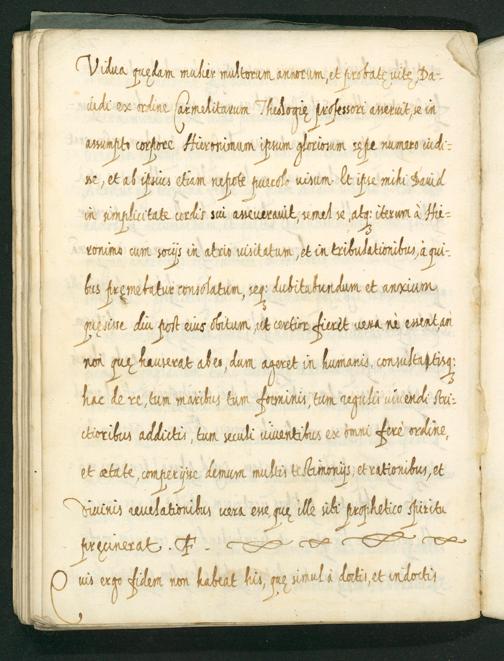 Vidua quędam mulier multorum annorum, et probatę uitę, Da-
uidi ex ordine Carmelitarum Theologię professori asseruit, se in
assumpto corpore Hieronimum ipsum gloriosum sępe numero uidis-
se, et ab ipsius etiam nepote puerolo uisum. Et ipse mihi Dauid
in simplicitate cordis sui asseuerauit, semel se, atq; iterum à Hie-
ronimo cum socijs in atrio uisitatum, et in tribulationibus, à qui-
bus pręmebatur consolatum, seq; dubitabundum et anxium
quęsisse diu post eius obitum, ut certior fieret uera nè essent, an
non quę hauserat ab eo, dum ageret in humanis, consultatisq;
hac de re, tum maribus tum foeminis, tum reguli uiuendi stri-
ctioribus addictis, tum seculi uiuentibus ex omni ferè ordine,
et ætate, comperijse demum multis testimonijs, et rationibus, et
diuinis reuelationibus uera esse, quę ille sibi prophetico spiritu
pręcinerat.
Quis ergo fidem non habeat his, quę simul à doctis, et indoctis